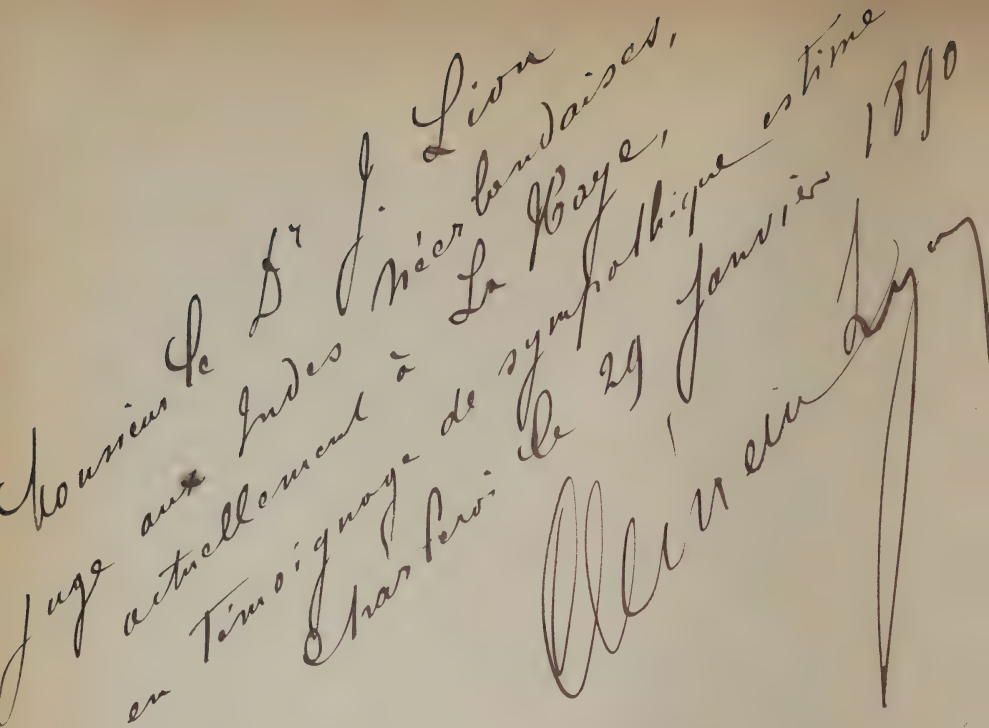 Monsieur le Dr J. Lion
juge aux Indes Néerlandaises,
actuellement à La Haye,
en Témoignage de sympathique estime
Charleroi le 29 Janvier 1890
Clément Lyon